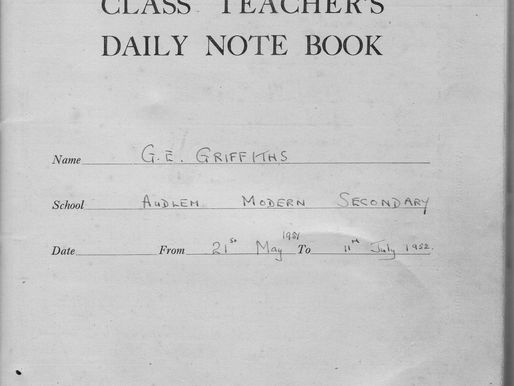 CLASS TEACHER'S
DAILY NOTE BOOK
Name G.E. GRIFFITHS
School AUDLEM MODERN SECONDARY
Date From 21st May 1951 To 11th July 1952.